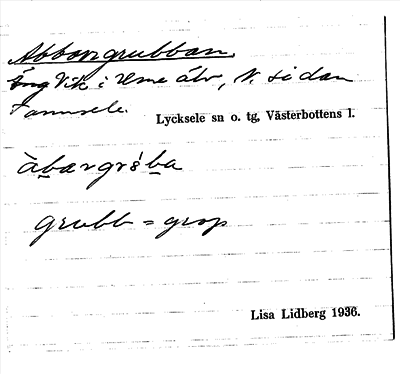 Abborrgrubban.
Vik i Ume älv, N. sidan
Tannsele.
Lycksele sn o. tg, Västerbottens l.
àbærgrɞ́ba
grubb = grop
Lisa Lidberg 1936.